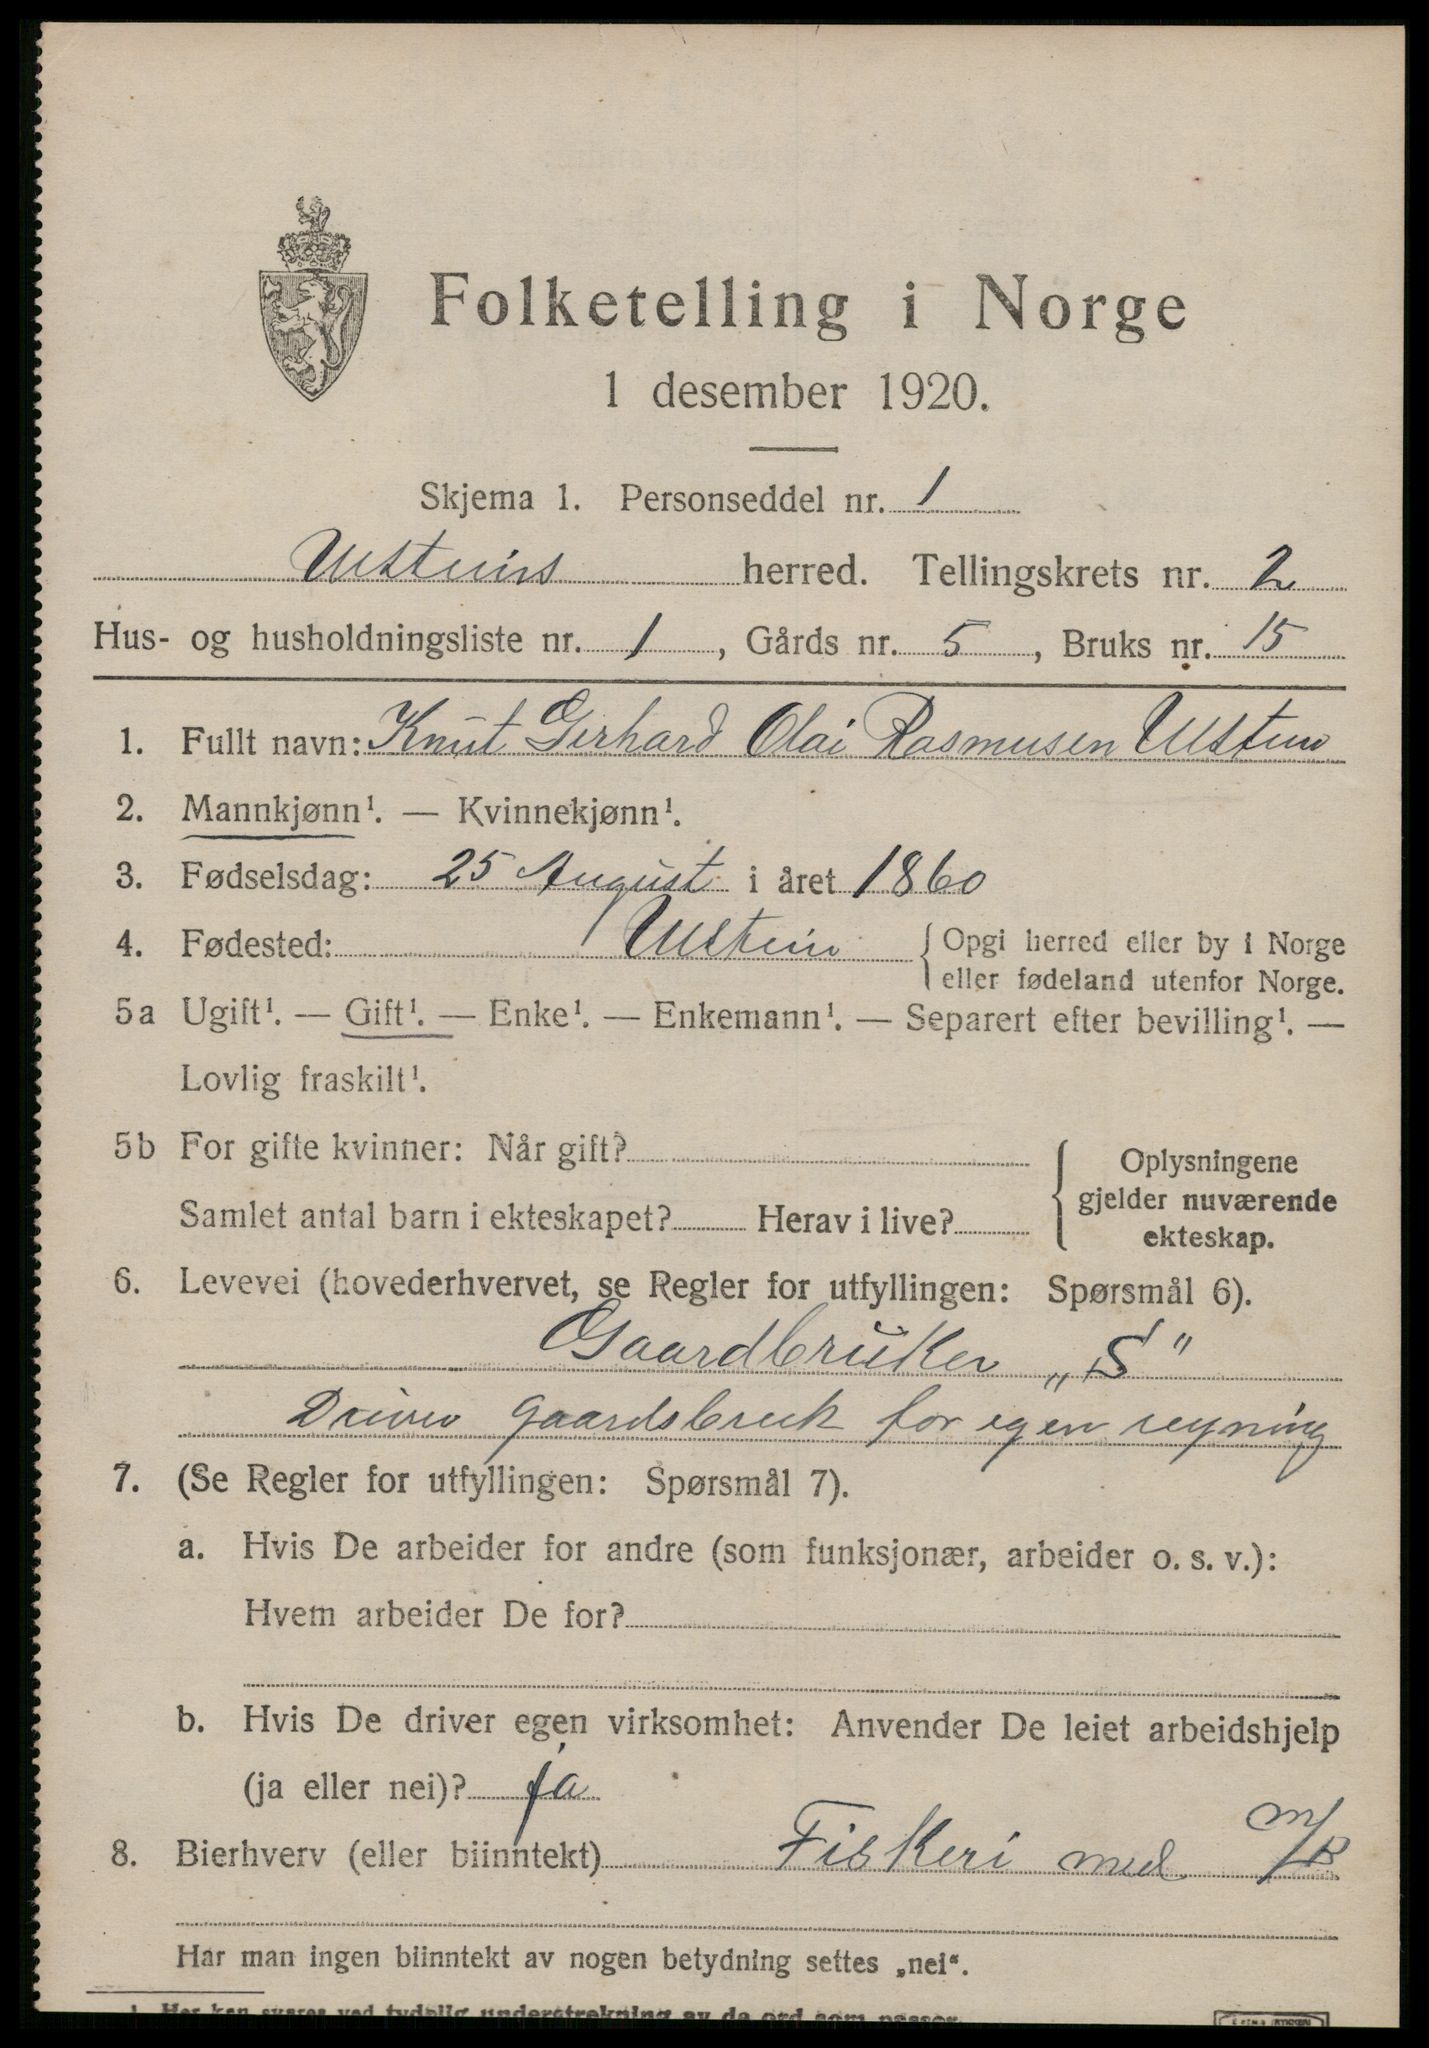 Folketelling i Norge
1 desember 1920.
Skjema 1. Personseddel nr. 1
Ulsteins herred. Tellingskrets nr. 2
Hus- og husholdningsliste nr. 1, Gårds nr. 5, Bruks nr. 15
1. Fullt navn: Knut Gerhard Olai Rasmusen Ulstein
2. Mannkjønn¹. — Kvinnekjønn¹.
3. Fødselsdag: 25 August i året 1860
4. Fødested: Ulstein { Opgi herred eller by i Norge
eller fødeland utenfor Norge.
5a Ugift¹. — Gift¹. — Enke¹. — Enkemann¹. — Separert efter bevilling¹. —
Lovlig fraskilt¹.
5b For gifte kvinner: Når gift?
Samlet antal barn i ekteskapet? Herav i live?
Oplysningene
gjelder nuværende
ekteskap.
6. Levevei (hovederhvervet, se Regler for utfyllingen: Spørsmål 6).
Gaardbruker „S"
Driver gaardsbruk for egen regning
7. (Se Regler for utfyllingen: Spørsmål 7).
a. Hvis De arbeider for andre (som funksjonær, arbeider o. s. v.):
Hvem arbeider De for?
b. Hvis De driver egen virksomhet: Anvender De leiet arbeidshjelp
(ja eller nei)? ja
8. Bierhverv (eller biinntekt) Fiskeri med m/k
Har man ingen biinntekt av nogen betydning settes „nei".
¹ Her kan svares ved tydelig understrekning av de ord som passer.